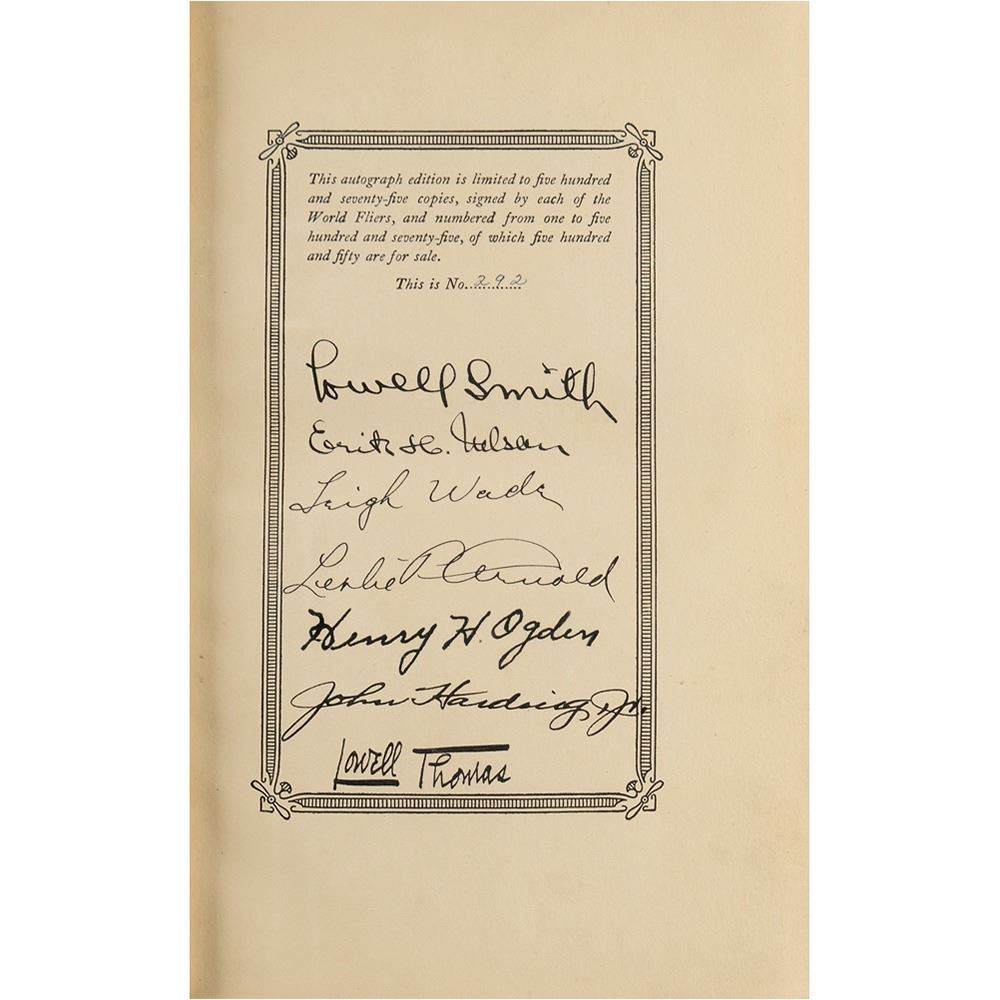 This autograph edition is limited to five hundred
and seventy-five copies, signed by each of the
World Fliers, and numbered from one to five
hundred and seventy-five, of which five hundred
and fifty are for sale.
This is No. 292
Lowell Smith
Erik H. Nelson
Leigh Wade
Leslie P Arnold
Henry H. Ogden
John Harding, Jr.
Lowell Thomas